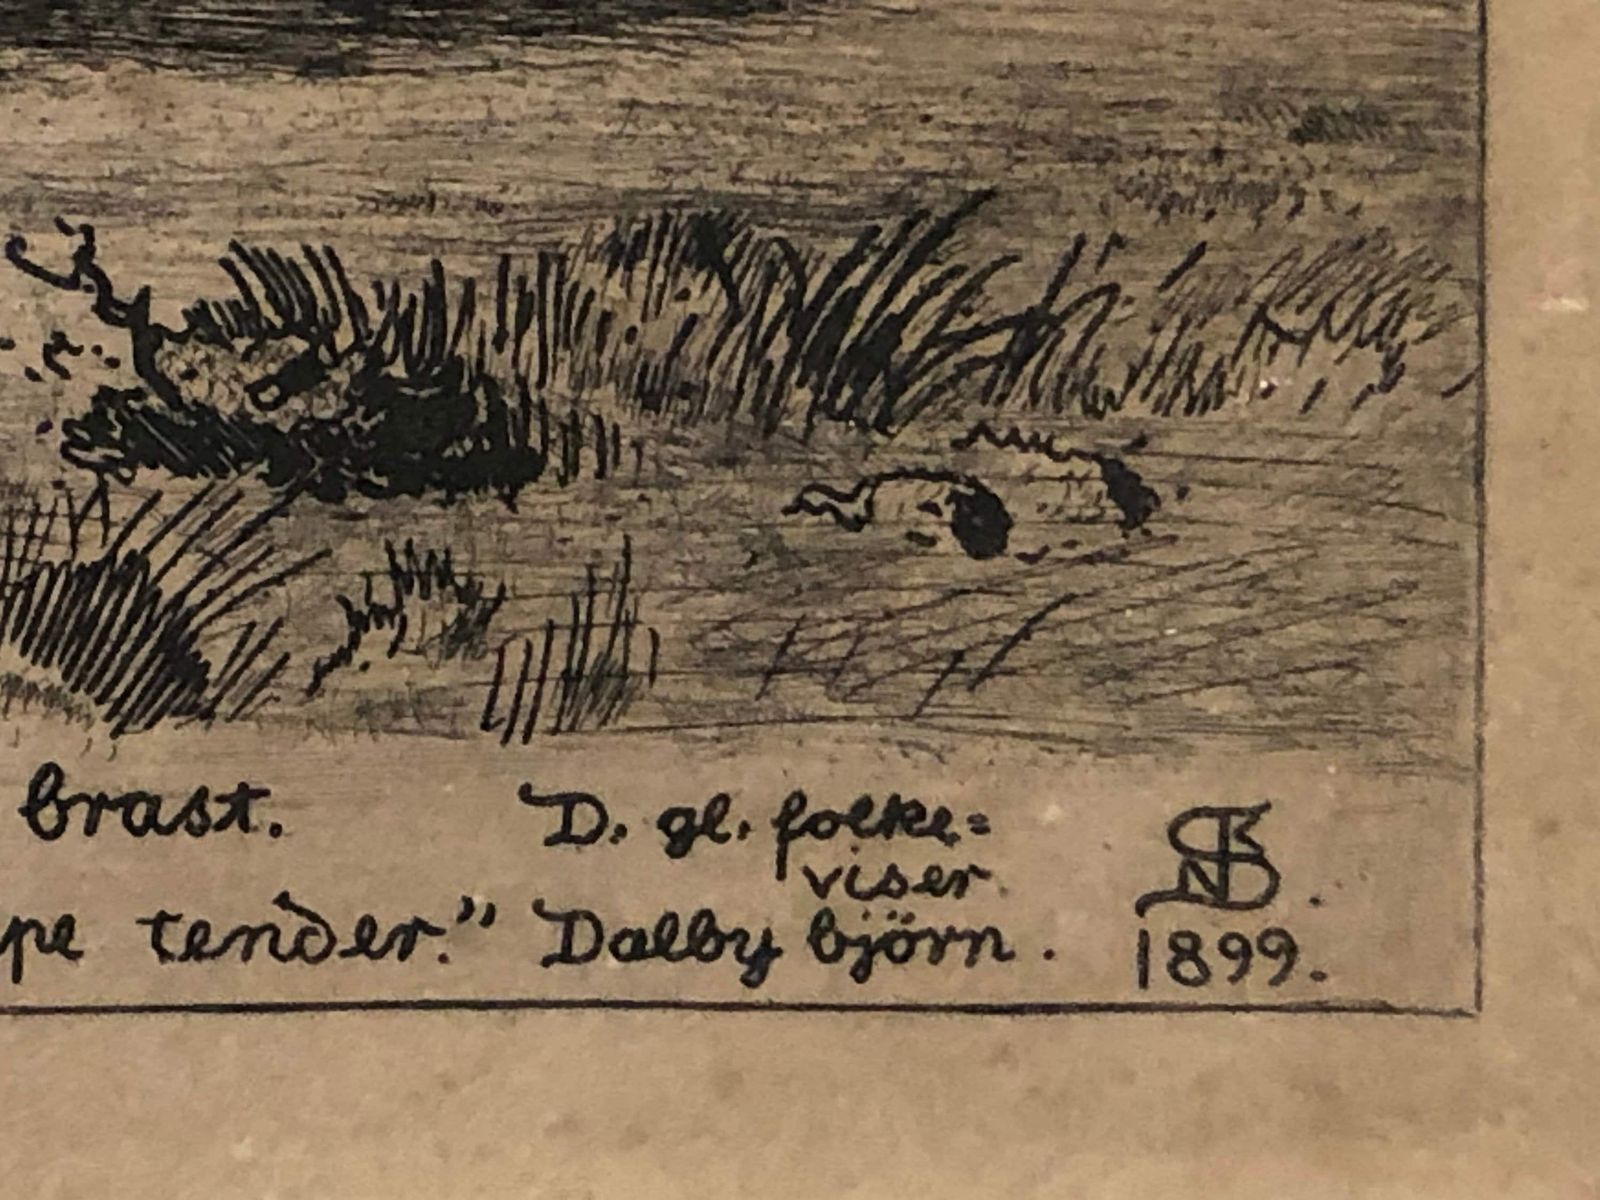 brast. D. gl. folke=
viser
pe tender." Dalby björn.
1899.